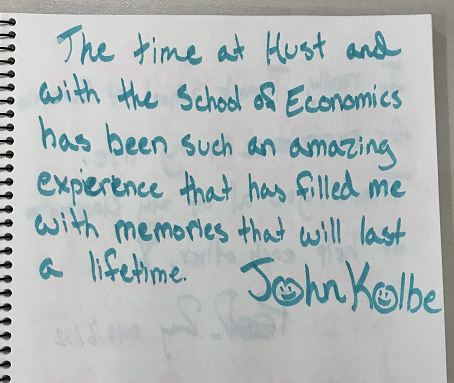 The time at Hust and
with the School of Economics
has been such an amazing
expierence that has filled me
with memories that will last
a lifetime.
John Kolbe